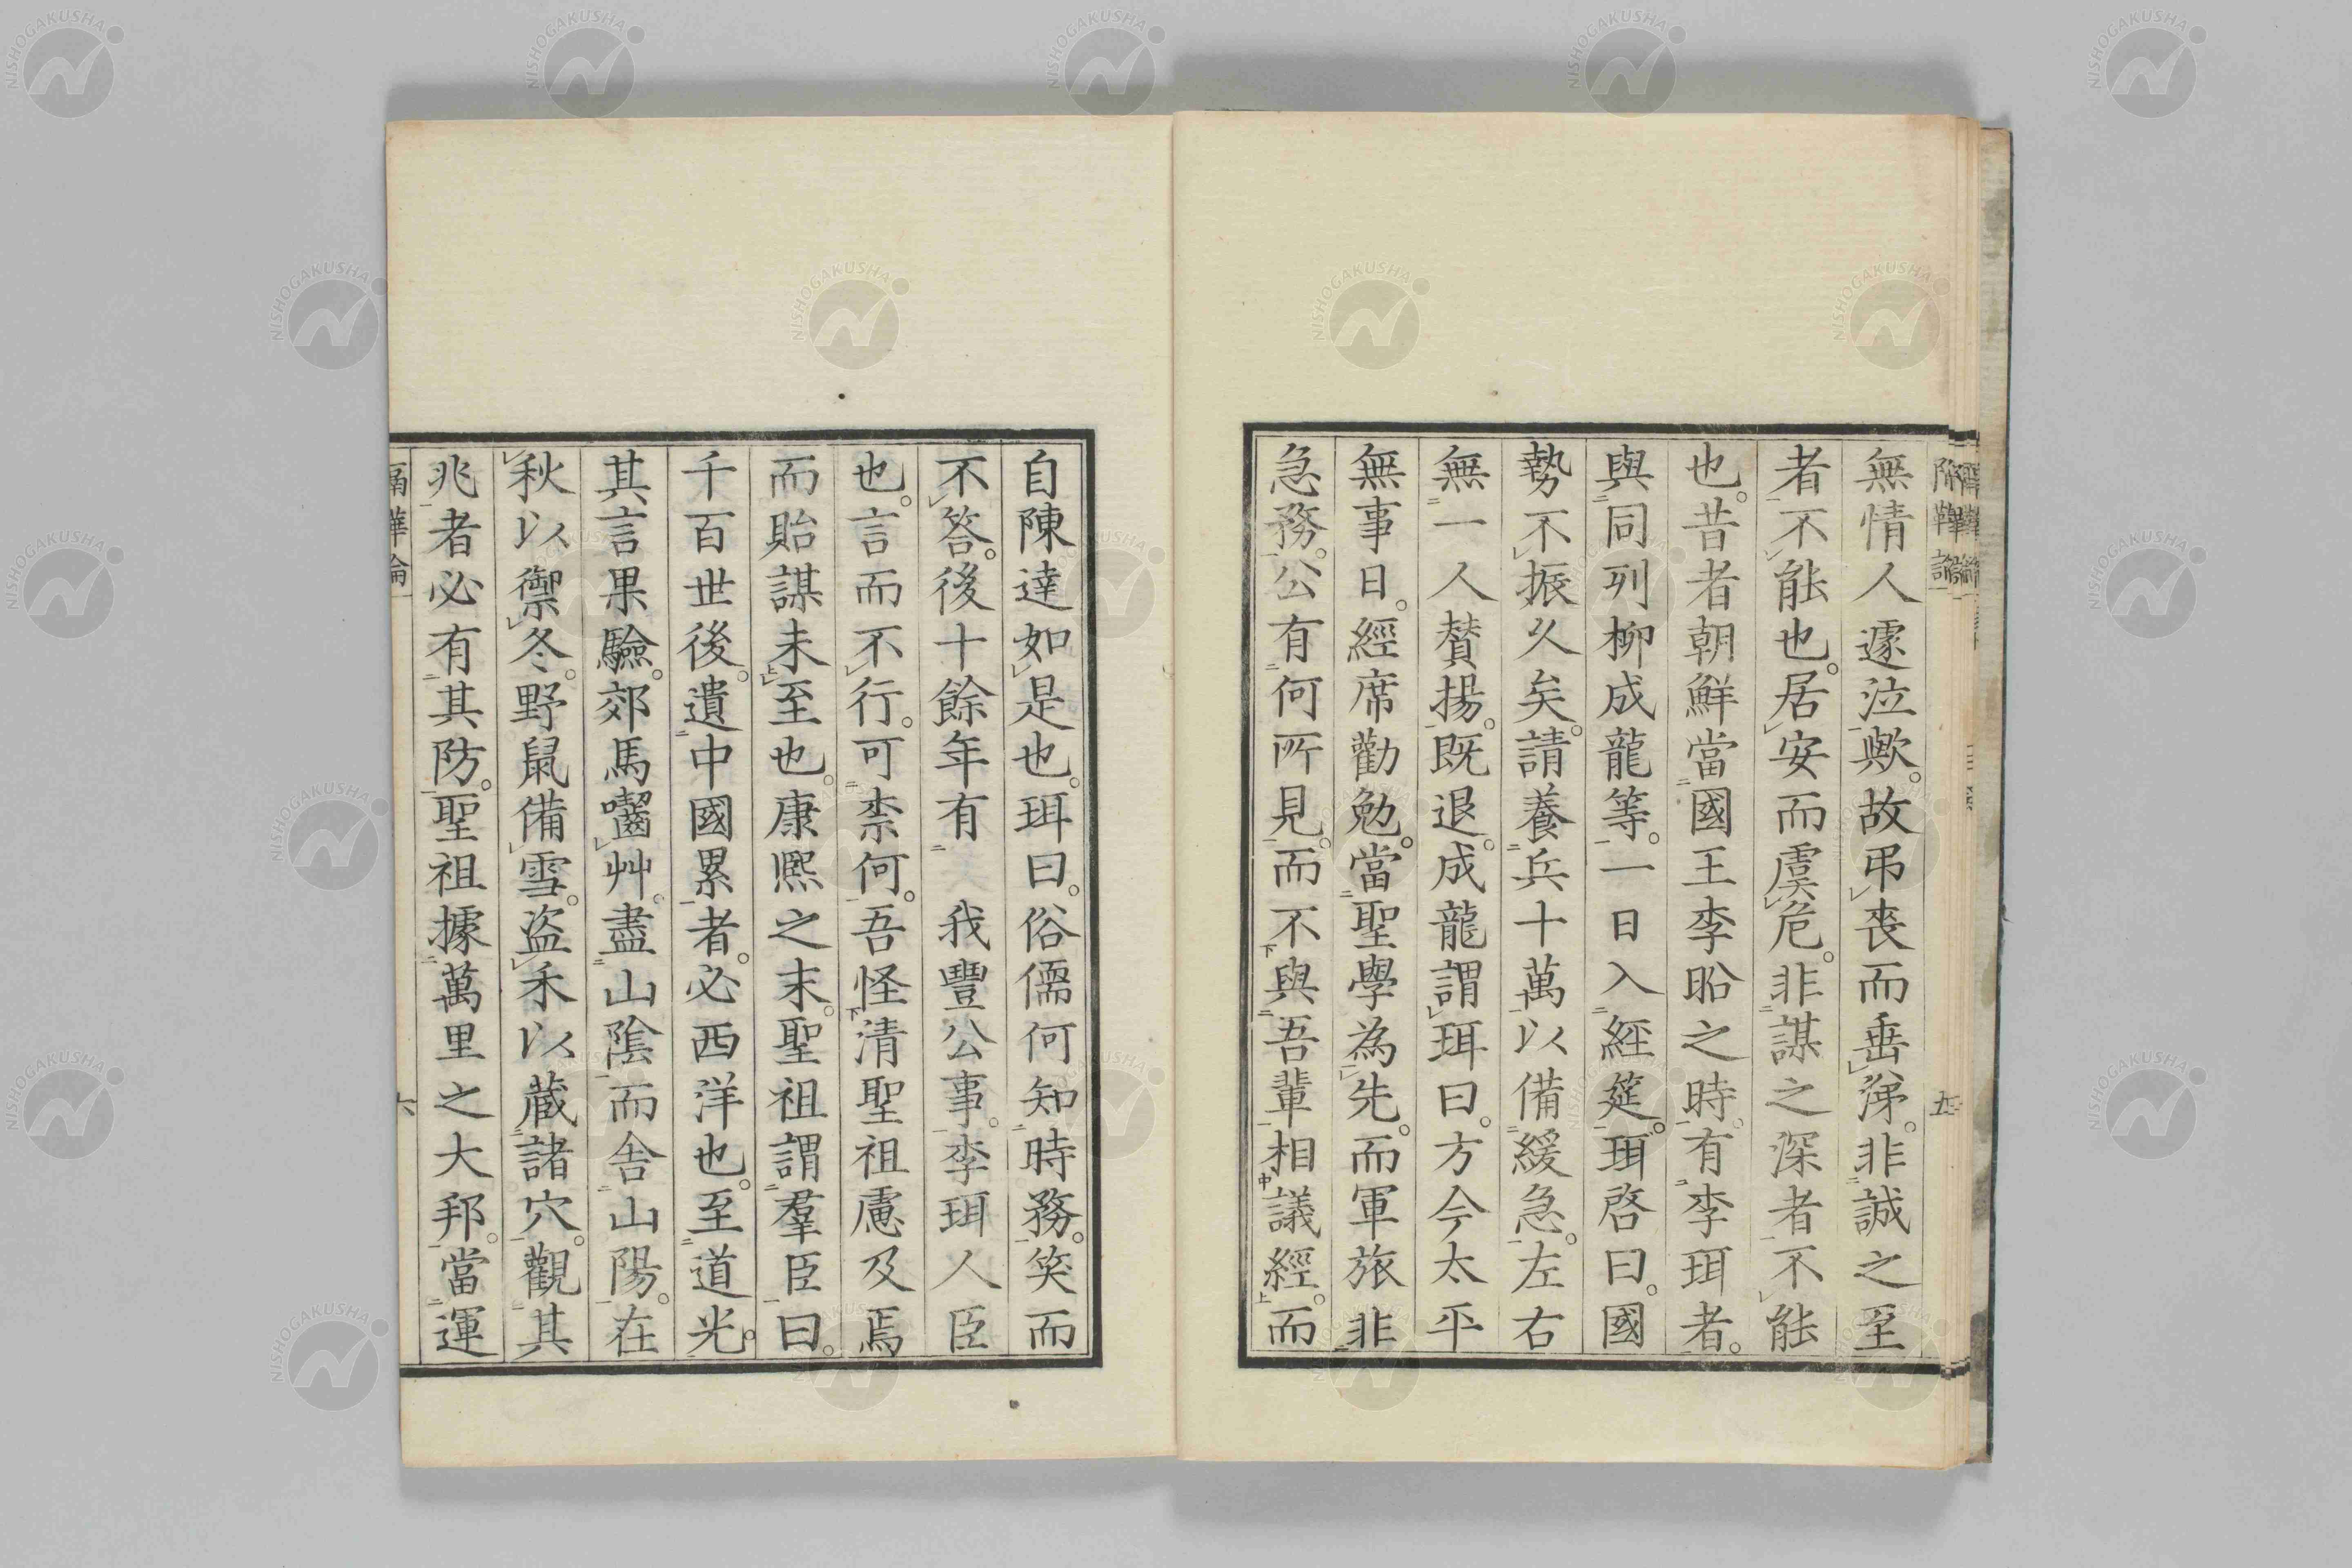 無情人遽泣歟。故弔喪而垂涕。非誠之至
者不能也。居安而虞危。非謀之深者不能
也。昔者朝鮮當國王李昖之時。有李珥者。
與同列柳成龍等。一日入經筵。珥啓曰。國
勢不振久矣。請養兵十萬以備緩急。左右
無一人賛揚。既退。成龍謂珥曰。方今太平
無事日。經席勸勉。當聖學為先。而軍旅非
急務。公有何所見。而不與吾輩相議經。而
五
自陳達如是也。珥曰。俗儒何知時務。笑而
不答。後十餘年有 我豐公事。李珥人臣
也。言而不行。可柰何。吾怪清聖祖慮及焉
而貽謀未至也。康熙之末。聖祖謂羣臣曰。
千百世後。遺中國累者。必西洋也。至道光。
其言果驗。郊馬囓艸。盡山陰而舍山陽。在
秋以禦冬。野鼠備雪。盜禾以藏諸穴。觀其
兆者必有其防。聖祖據萬里之大邦。當運
六
NISHOGAKUSHA